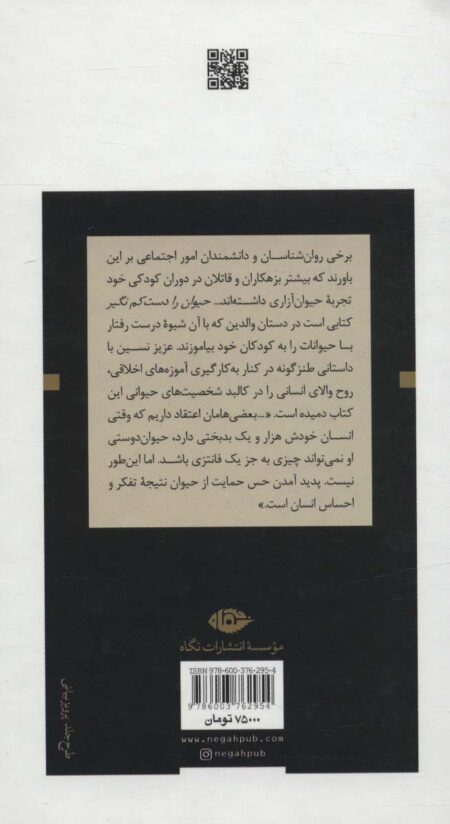 برخی روان‌شناسان و دانشمندان امور اجتماعی بر این
باورند که بیشتر بزهکاران و قاتلان در دوران کودکی خود
تجربهٔ حیوان‌آزاری داشته‌اند... حیوان را دست‌کم نگیر
کتابی است در دستان والدین که با آن شیوهٔ درست رفتار
با حیوانات را به کودکان خود بیاموزند. عزیز نسین با
داستانی طنزگونه در کنار به‌کارگیری آموزه‌های اخلاقی،
روح والای انسانی را در کالبد شخصیت‌های حیوانی این
کتاب دمیده است. «...بعضی‌هامان اعتقاد داریم که وقتی
انسان خودش هزار و یک بدبختی دارد، حیوان‌دوستی
او نمی‌تواند چیزی به جز یک فانتزی باشد. اما این‌طور
نیست. پدید آمدن حس حمایت از حیوان نتیجهٔ تفکر و
احساس انسان است.»
مؤسسهٔ انتشارات نگاه
ISBN 978-600-376-295-4
9 786003 762954
۷۵۰۰۰ تومان
www.negahpub.com
negahpub
طرح جلد: پرویز بیانی